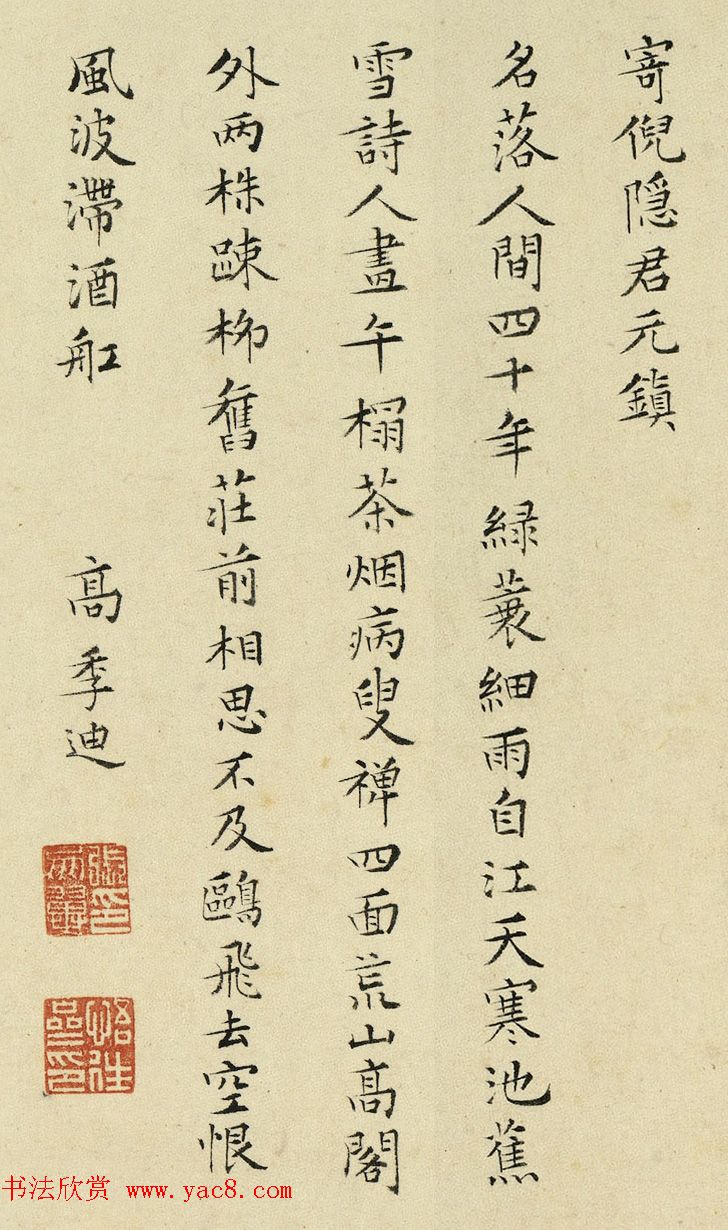 寄倪隐君元鎮
名落人間四十年緑蓑細雨自江天寒池蕉
雪詩人畫午榻茶烟病叟禅四面荒山高閣
外两株踈栁舊莊前相思不及鷗飛去空恨
風波滯酒舡
高季迪
书法欣赏 www.yac8.com